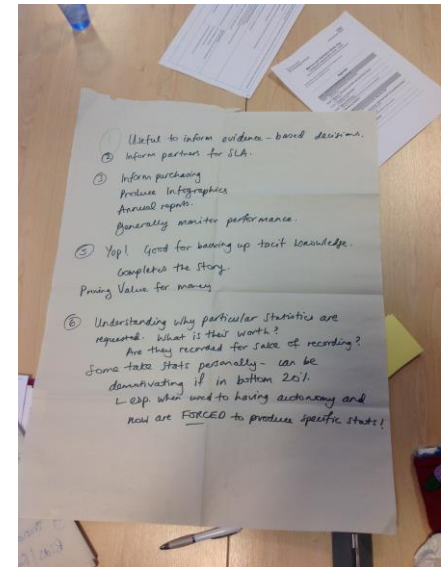 ① Useful to inform evidence-based decisions.
② Inform partners for SLA.
③ Inform purchasing
Produce Infographics
Annual reports.
Generally moniter performance.
⑤ Yep! Good for backing up tacit knowledge.
Completes the story.
Proving Value for money
⑥ Understanding why particular statistics are
requested. What is their worth?
Are they recorded for sake of recording?
Some take stats personally - can be
demotivating if in bottom 20%.
esp. when used to having autonomy and
now are FORCED to produce specific stats!